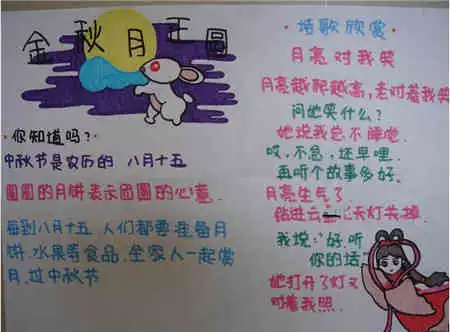 金秋月正圆
·你知道吗?·
中秋节是农历的 八月十五
圆圆的月饼表示团圆的心意.
每到八月十五 人们都要准备月
饼.水果等食品.全家人一起赏
月.过中秋节
·诗歌欣赏·
月亮对我笑
月亮越爬越高,老对着我笑
问她笑什么?
她说我总不睡觉.
哎,不急,还早哩.
再听个故事多好.
月亮生气了
钻进云 把天灯关掉.
我说:好.听
你的话.
她打开了灯又
对着我照.